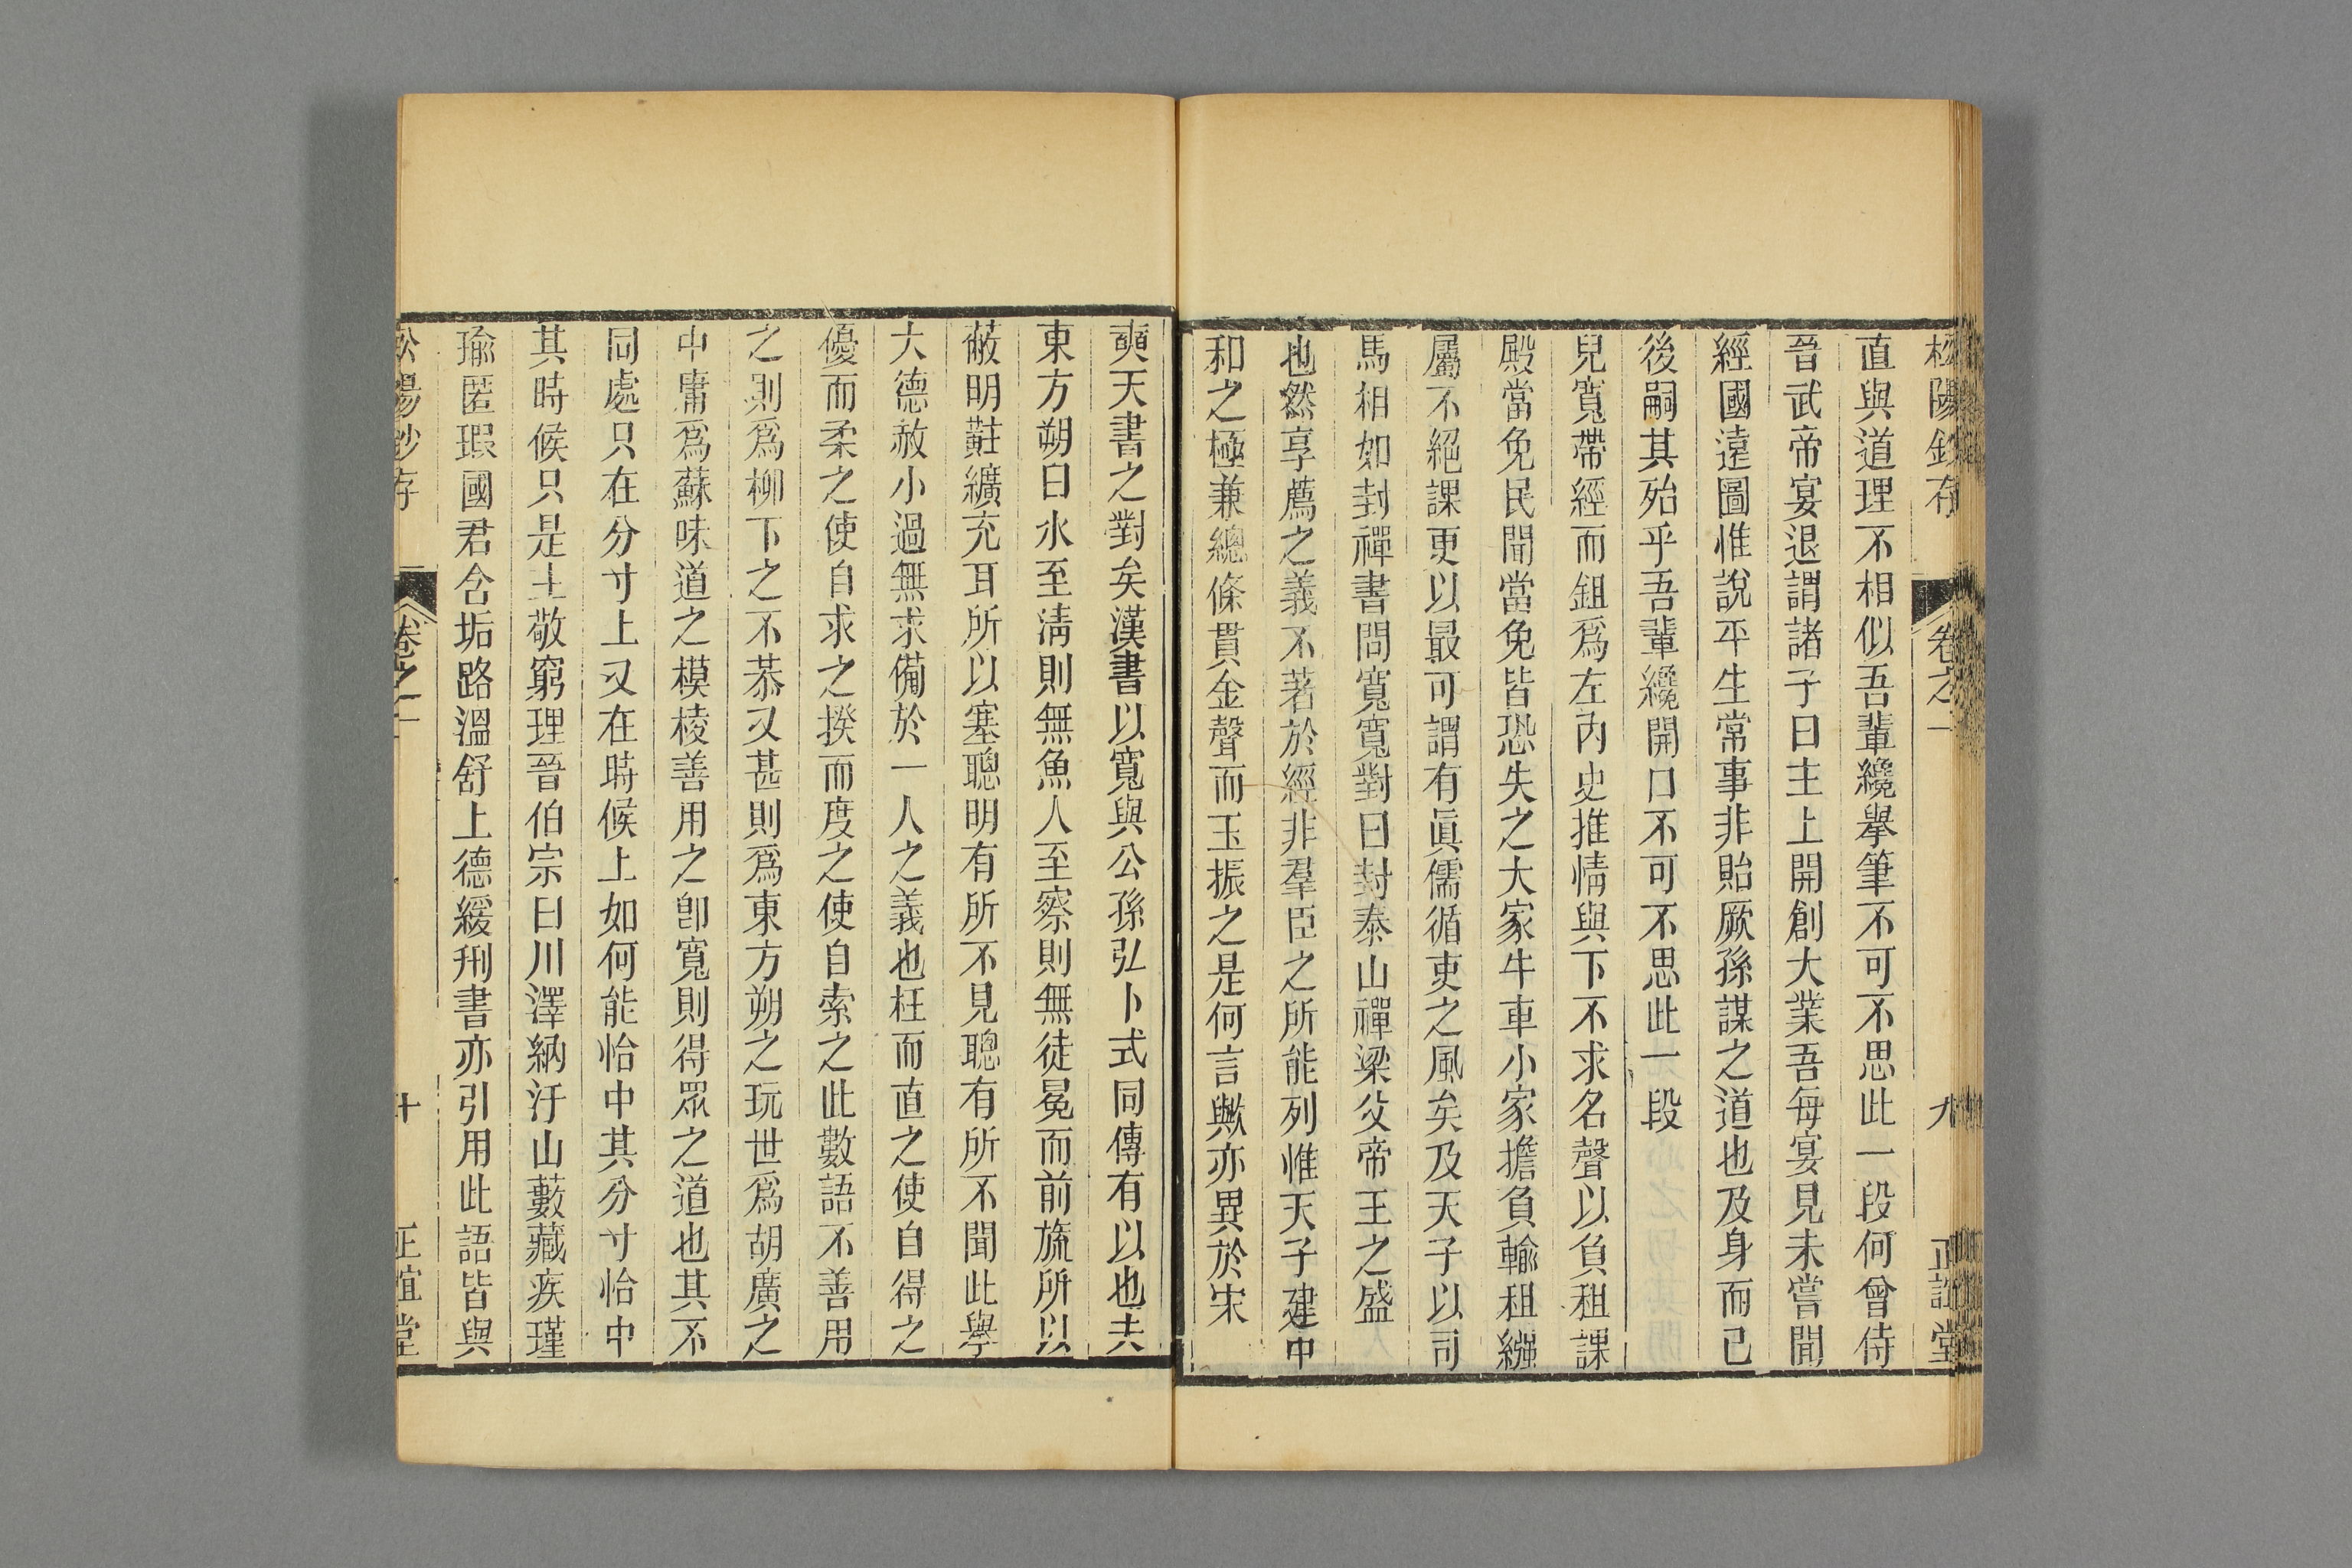 松陽鈔存 卷之一 九 正誼堂
直與道理不相似吾輩纔舉筆不可不思此一段何曾侍
晉武帝宴退謂諸子曰主上開創大業吾每宴見未嘗聞
經國遠圖惟說平生常事非貽厥孫謀之道也及身而已
後嗣其殆乎吾輩纔開口不可不思此一段
兒寬帶經而鉏爲左內史推情與下不求名聲以負租課
殿當免民聞當免皆恐失之大家牛車小家擔負輸租繈
屬不絕課更以最可謂有眞儒循吏之風矣及天子以司
馬相如封禪書問寬寬對曰封泰山禪梁父帝王之盛
也然享薦之義不著於經非羣臣之所能列惟天子建中
和之極兼總條貫金聲而玉振之是何言歟亦異於宋
奭天書之對矣漢書以寬與公孫弘卜式同傳有以也夫
東方朔曰水至淸則無魚人至察則無徒冕而前旒所以
蔽明黈纊充耳所以塞聰明有所不見聰有所不聞此舉
大德赦小過無求備於一人之義也枉而直之使自得之
優而柔之使自求之揆而度之使自索之此數語不善用
之則爲柳下之不恭又甚則爲東方朔之玩世爲胡廣之
中庸爲蘇味道之模棱善用之卽寬則得眾之道也其不
同處只在分寸上又在時候上如何能恰中其分寸恰中
其時候只是主敬窮理晉伯宗曰川澤納汙山藪藏疾瑾
瑜匿瑕國君含垢路溫舒上德緩刑書亦引用此語皆與
松陽鈔存 卷之一 十 正誼堂